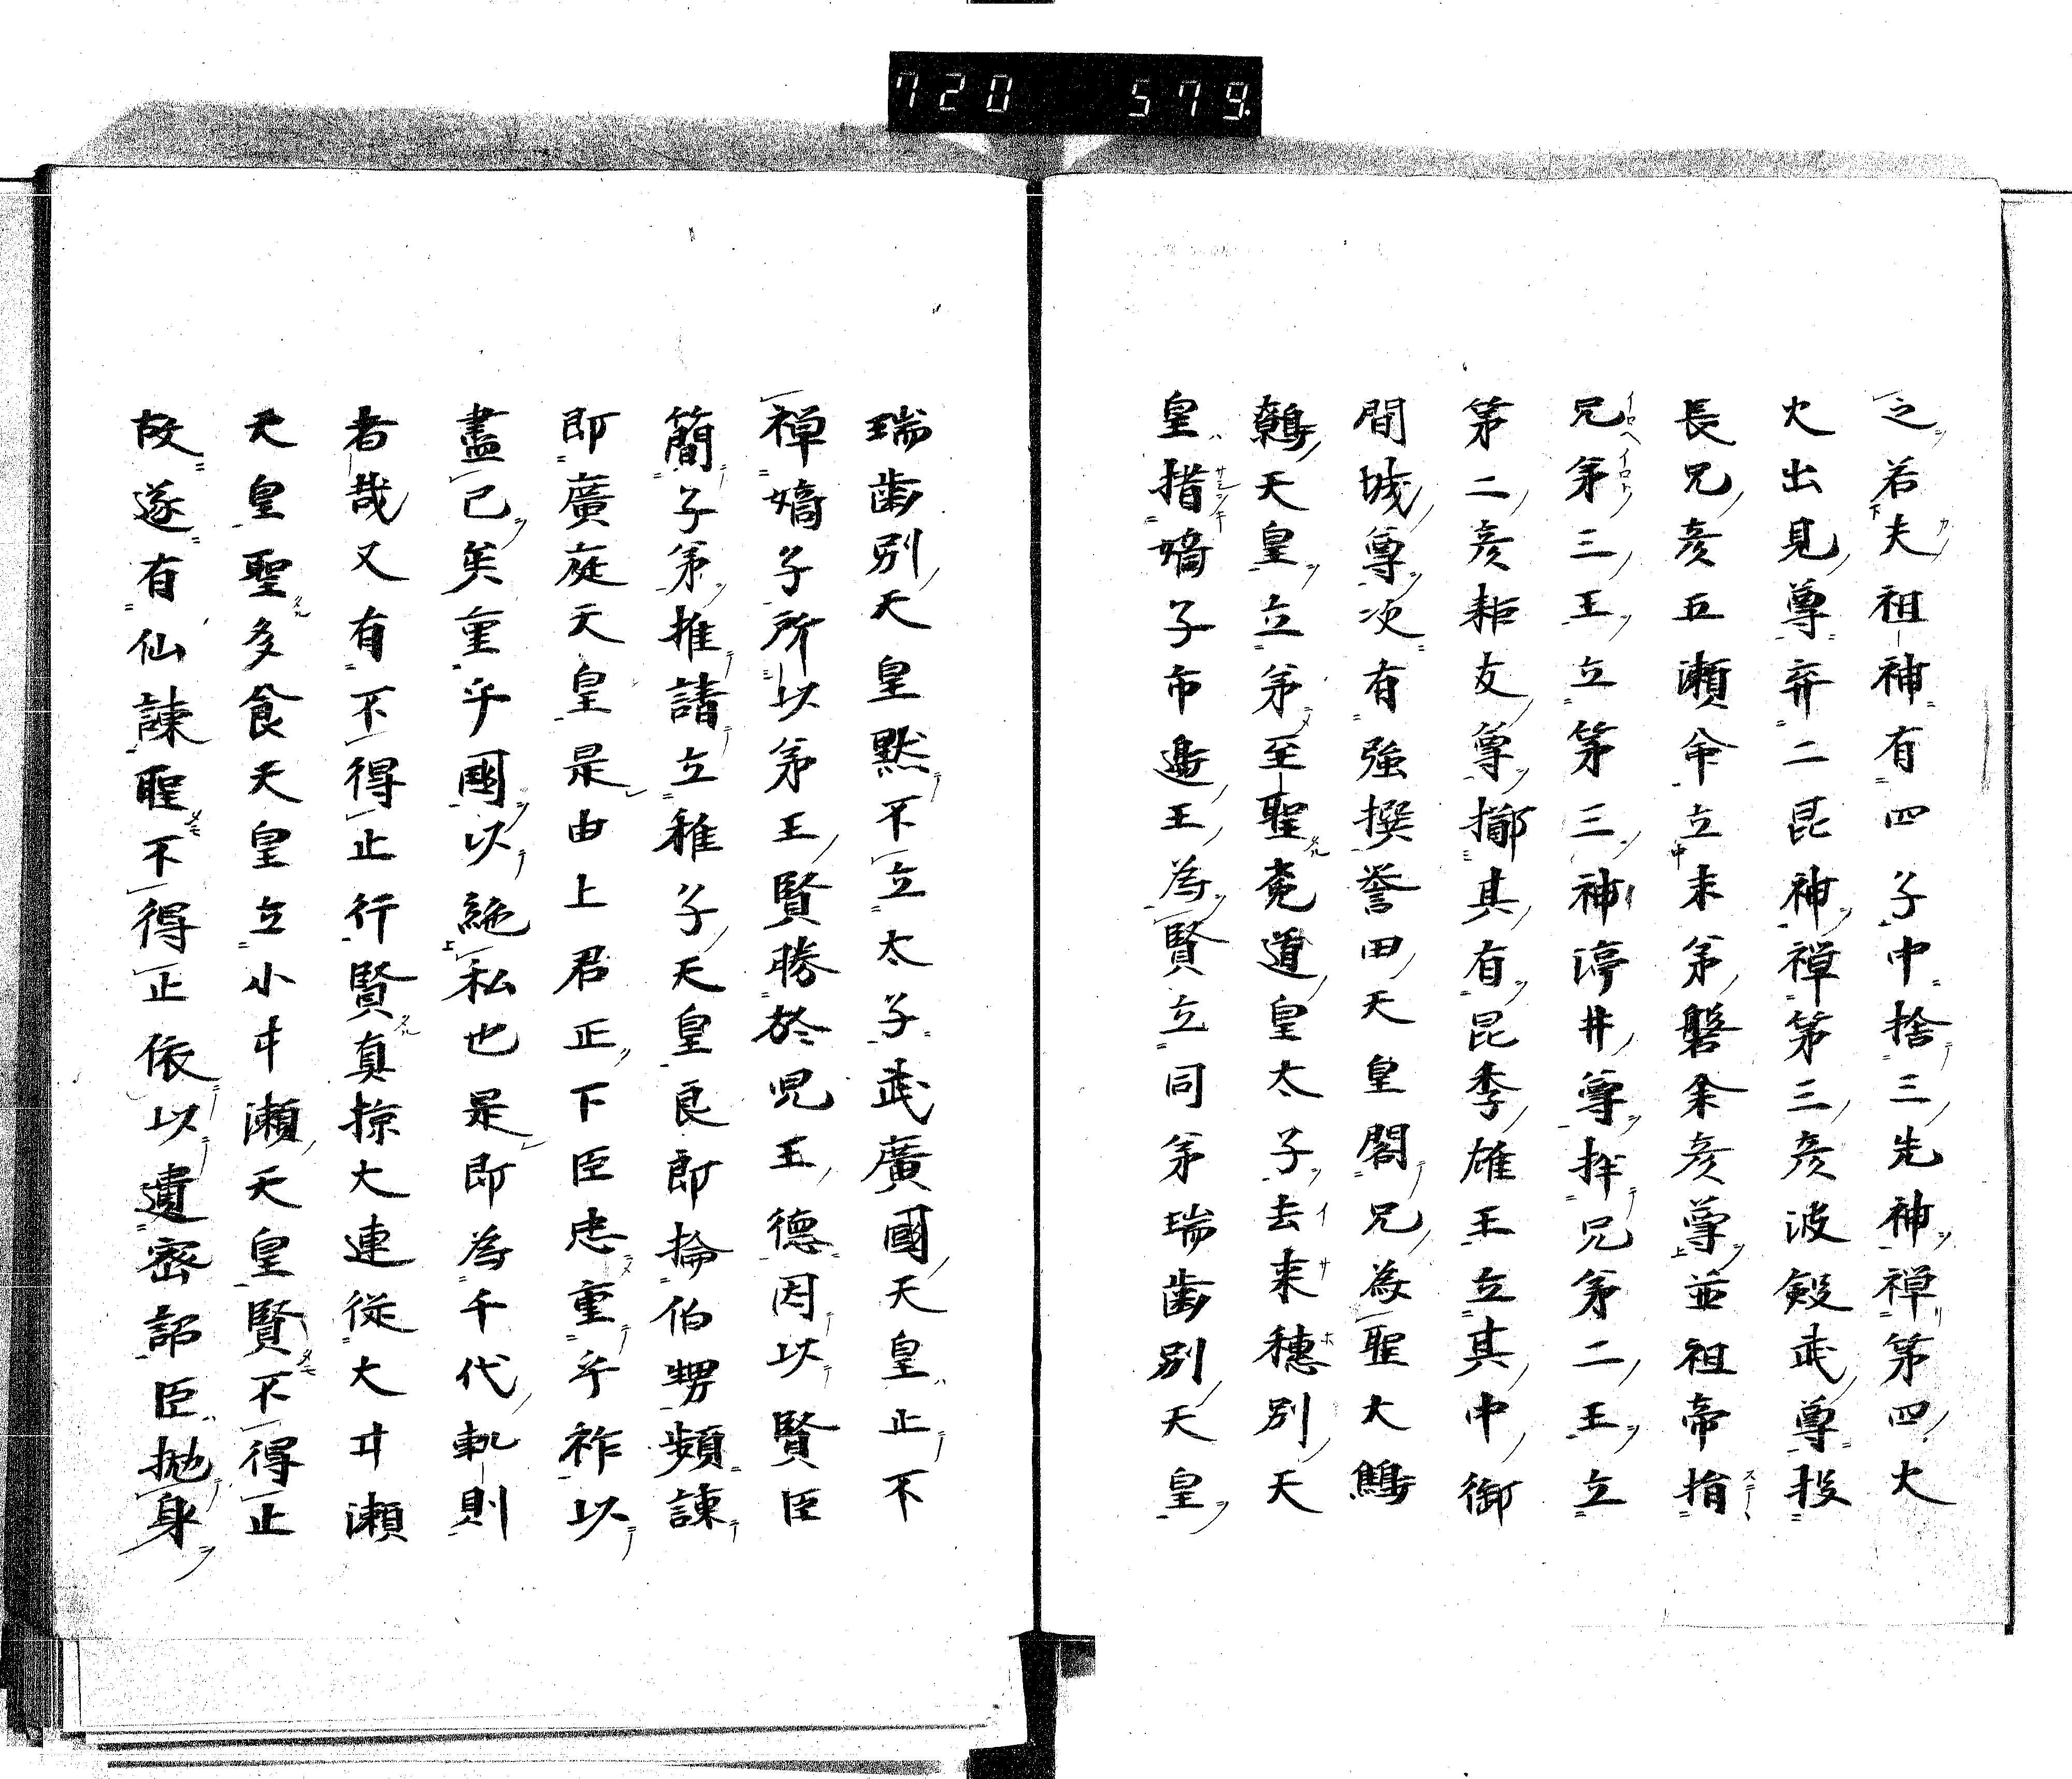 720 579
之若夫祖神有四子中捨三先神禅第四火
火出見尊弃二昆神禅第三彦波瀲武尊投
長兄彦五瀬命立末弟磐余彦尊並祖帝揹
兄弟三王立第三神渟井尊拌兄第二王立
第二彦耜友尊擲其有昆季雄王立其中御
間城尊次有強撰誉田天皇閣兄為聖大鷦
鷯天皇立弟至聖菟道皇太子去来穂別天
皇措嫡子市邊王為賢立同弟瑞歯別天皇
瑞歯別天皇黙不立太子武廣國天皇止不
禅嫡子所以弟王賢勝於兄王德因以賢臣
簡子弟推請立稚子天皇良即掄伯甥頻諌
即廣庭天皇是由上君正下臣忠重乎祚以
盡己矣重乎國以絶私也是即為千代軌則
者哉又有不得止行賢真掠大連従大井瀬
天皇聖多食天皇立小井瀬天皇賢不得止
故遂有仙諌聖不得止依以遺密詔臣拋身